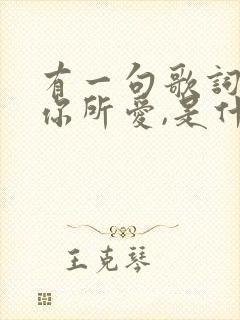 有一句歌詞
你所爱,是什
王克琴